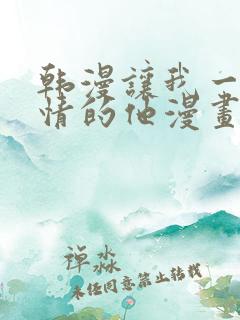 韩漫讓我一
情的他漫畫
禅淼
未经同意禁止转载